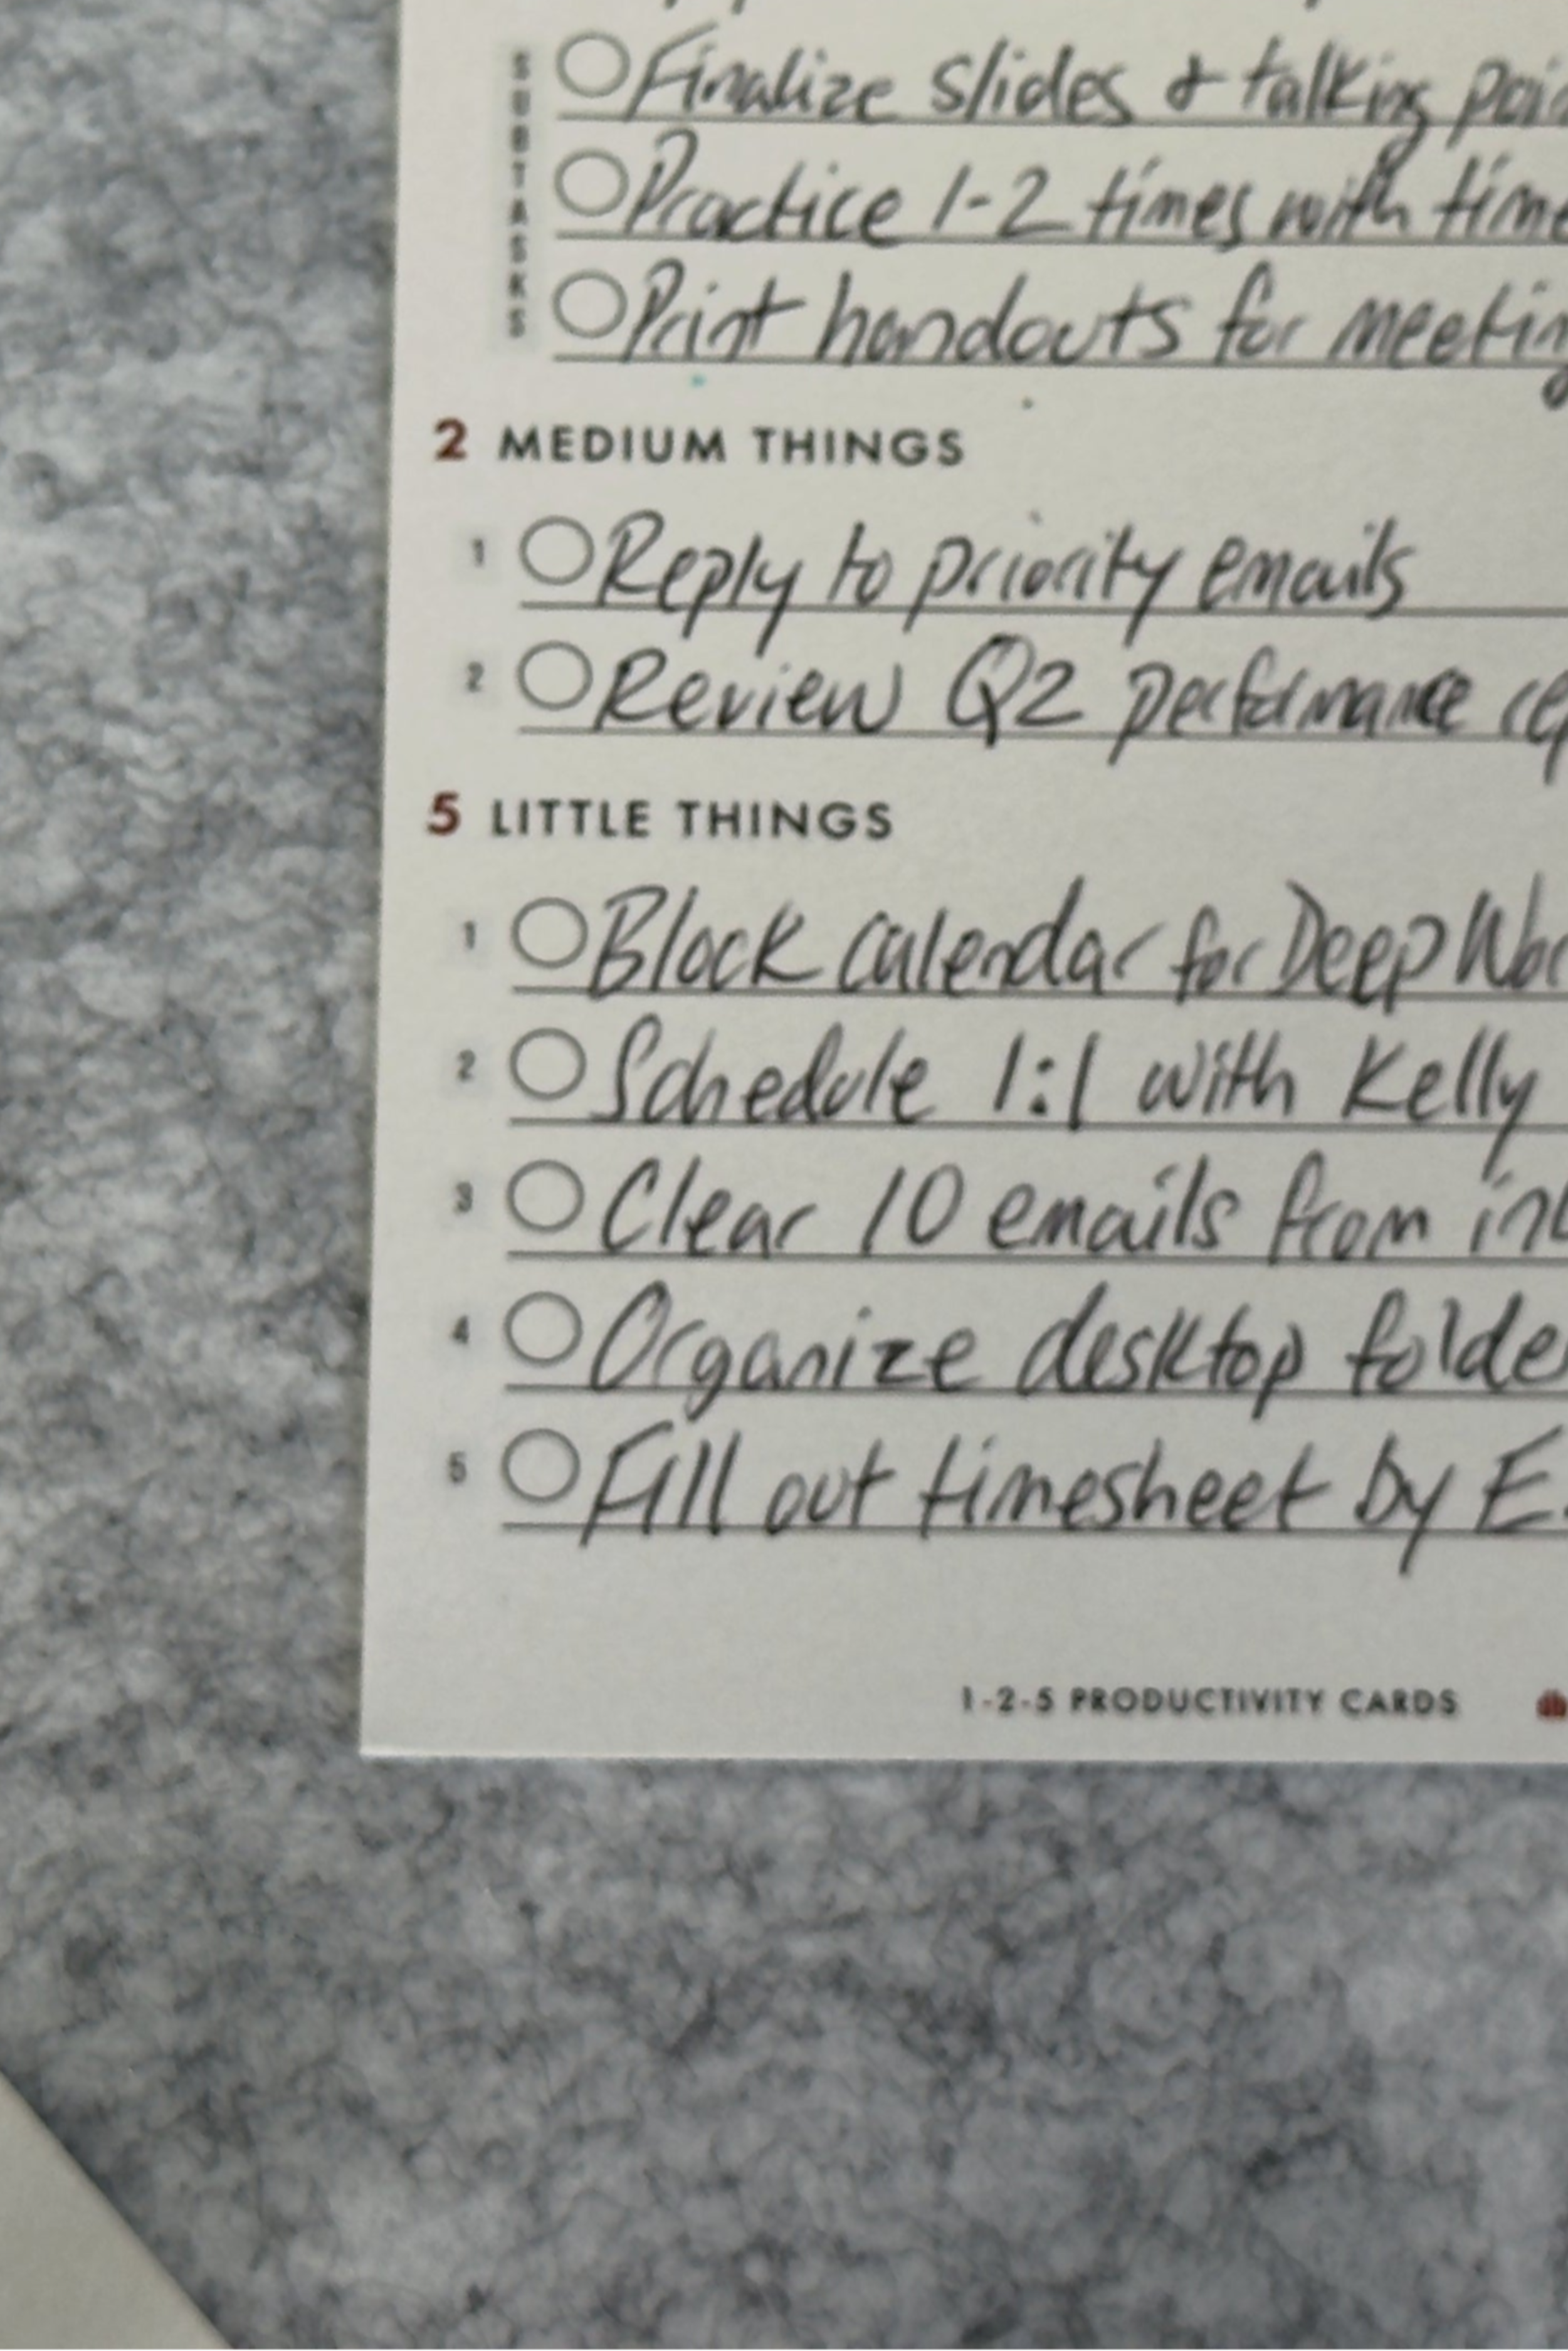 SUBTASKS
Finalize slides & talking
Practice 1-2 times with
Print handouts for
2 MEDIUM THINGS
1 Reply to priority emails
2 Review Q2 performance
5 LITTLE THINGS
1 Block calendar for Deep
2 Schedule 1:1 with Kelly
3 Clear 10 emails from
4 Organize desktop
5 Fill out timesheet by
1-2-5 PRODUCTIVITY CARDS